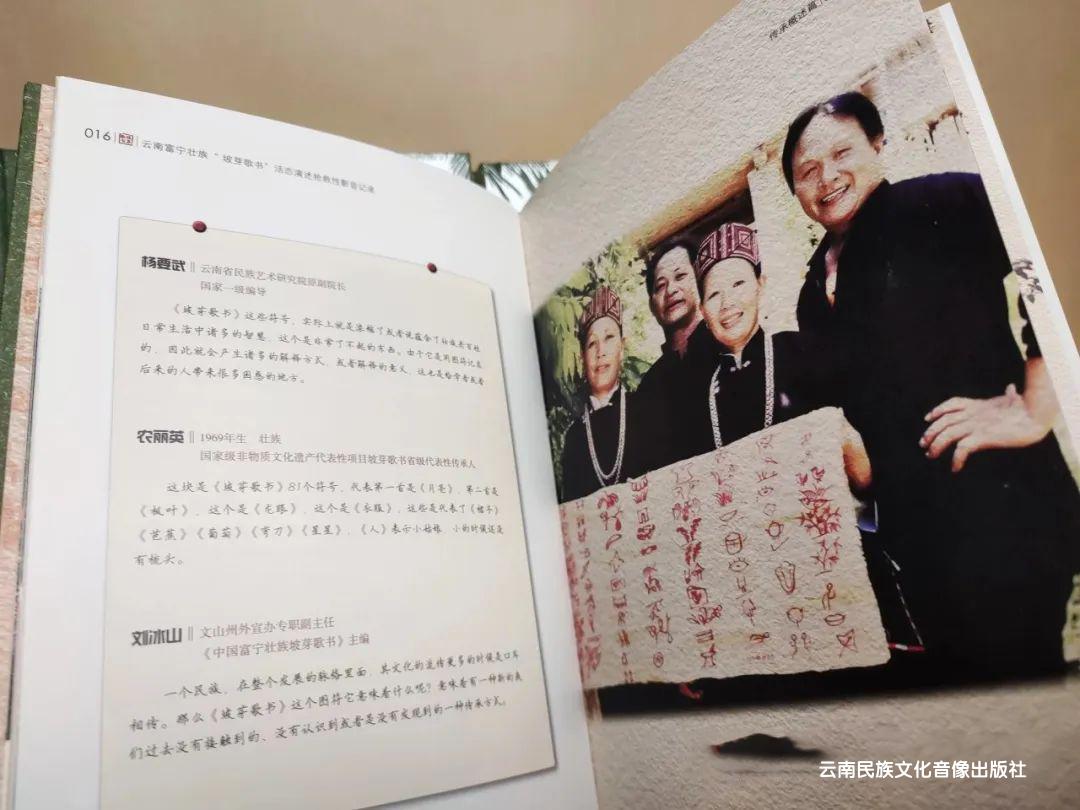 016
云南富宁壮族“坡芽歌书”活态演述抢救性影音记录
杨要武 云南省民族艺术研究院原副院长
国家一级编导
《坡芽歌书》这些符号，实际上就是浓缩了或者说蕴含了壮族老百姓
日常生活中诸多的智慧，这个是非常了不起的东西。由于它是用图符记录
的，因此就会产生诸多的解释方式，或者解释的意义，这也是给学者或者
后来的人带来很多困惑的地方。
农丽英 1969年生 壮族
国家级非物质文化遗产代表性项目坡芽歌书省级代表性传承人
这块是《坡芽歌书》81个符号，代表第一首是《月亮》，第二首是
《枫叶》，这个是《龙眼》，这个是《衣服》，这些是代表了《褶子》
《芭蕉》《葡萄》《弯刀》《星星》，《人》表示小姑娘，小的时候还是
有梳头。
刘冰山 文山州外宣办专职副主任
《中国富宁壮族坡芽歌书》主编
一个民族，在整个发展的脉络里面，其文化的流传更多的时候是口耳
相传。那么《坡芽歌书》这个图符它意味着什么呢？意味着有一种新的我
们过去没有接触到的、没有认识到或者是没有发现到的一种传承方式。
传承概述篇
云南民族文化音像出版社